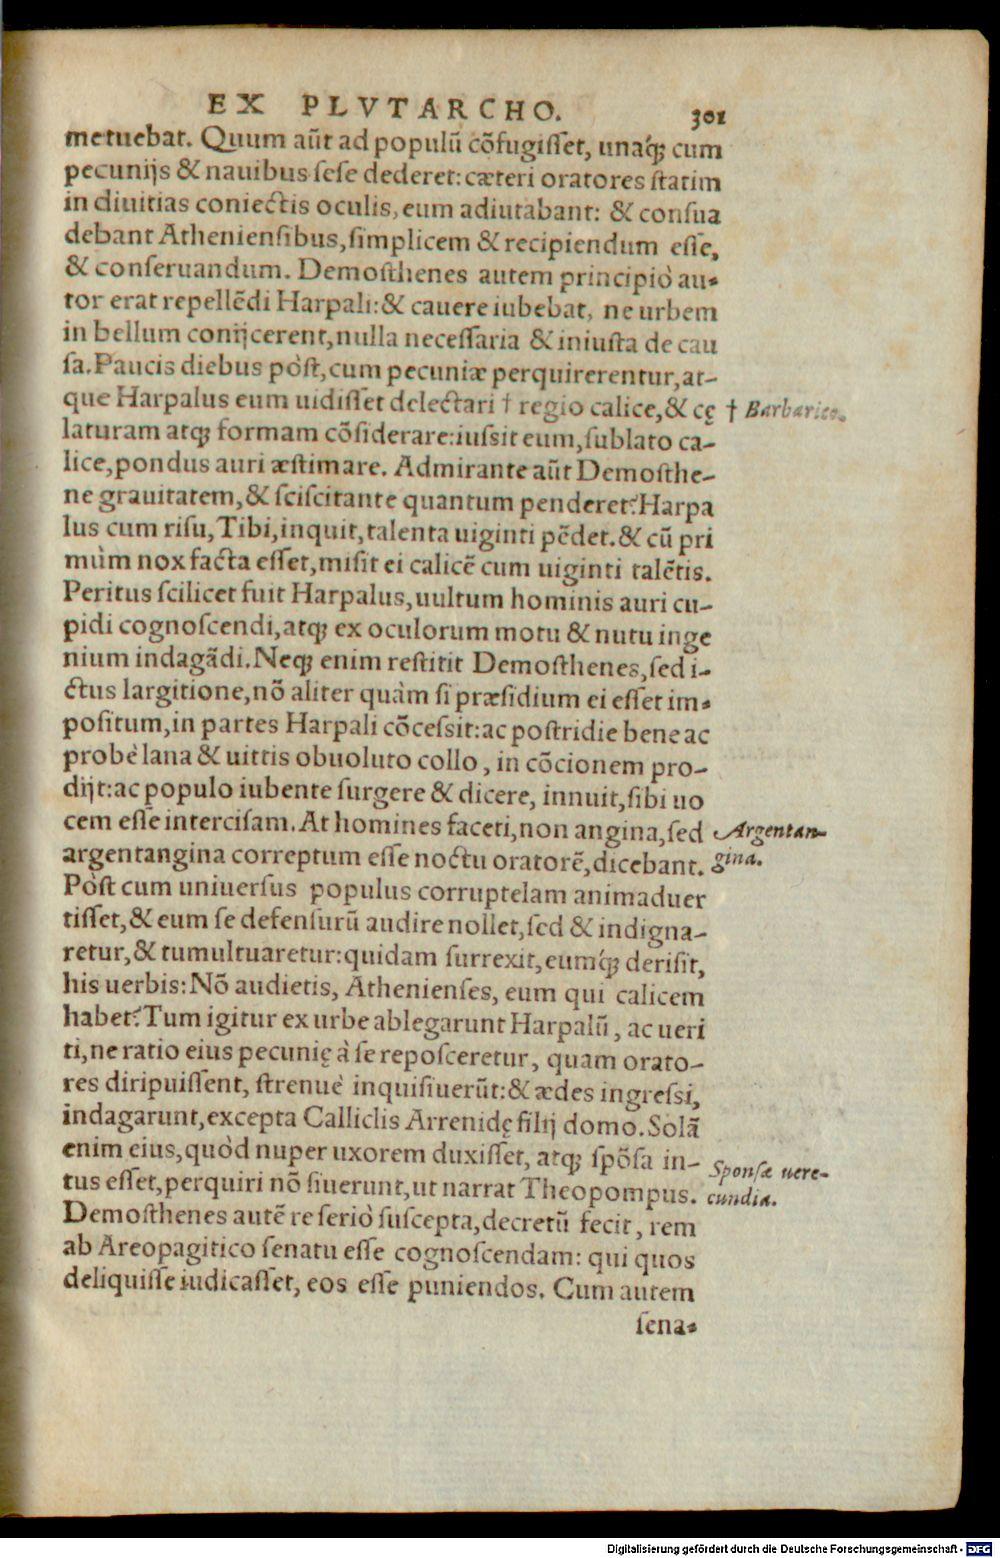 EX PLVTARCHO. 301
metuebat. Quum aūt ad populū cōfugiſſet, unaq́ꝫ cum
pecunijs & nauibus ſeſe dederet: cæteri oratores ſtatim
in diuitias coniectis oculis, eum adiutabant: & conſua
debant Athenienſibus, ſimplicem & recipiendum eſſe,
& conſeruandum. Demoſthenes autem principiò au-
tor erat repellēdi Harpali: & cauere iubebat, ne urbem
in bellum conijcerent, nulla neceſſaria & iniuſta de cau
ſa. Paucis diebus pòſt, cum pecuniæ perquirerentur, at-
que Harpalus eum uidiſſet delectari † regio calice, & cę
† Barbarico.
laturam atqꝫ formam cōſiderare: iuſsit eum, ſublato ca-
lice, pondus auri æſtimare. Admirante aūt Demoſthe-
ne grauitatem, & ſciſcitante quantum penderet? Harpa
lus cum riſu, Tibi, inquit, talenta uiginti pēdet. & cū pri
mùm nox facta eſſet, miſit ei calicē cum uiginti talētis.
Peritus ſcilicet fuit Harpalus, uultum hominis auri cu-
pidi cognoſcendi, atqꝫ ex oculorum motu & nutu inge
nium indagādi. Neqꝫ enim reſtitit Demoſthenes, ſed i-
ctus largitione, nō aliter quàm ſi præſidium ei eſſet im-
poſitum, in partes Harpali cōceſsit: ac poſtridie bene ac
probè lana & uittis obuoluto collo, in cōcionem pro-
dijt: ac populo iubente ſurgere & dicere, innuit, ſibi uo
cem eſſe interciſam. At homines faceti, non angina, ſed
argentangina correptum eſſe noctu oratorē, dicebant.
Argentan-
gina.
Pòſt cum uniuerſus populus corruptelam animaduer
tiſſet, & eum ſe defenſurū audire nollet, ſed & indigna-
retur, & tumultuaretur: quidam ſurrexit, eumq́ꝫ deriſit,
his uerbis: Nō audietis, Athenienſes, eum qui calicem
habet? Tum igitur ex urbe ablegarunt Harpalū, ac ueri
ti, ne ratio eius pecunię à ſe repoſceretur, quam orato-
res diripuiſſent, ſtrenuè inquiſiuerūt: & ædes ingreſsi,
indagarunt, excepta Calliclis Arrenidę filij domo. Solā
enim eius, quòd nuper uxorem duxiſſet, atqꝫ ſpōſa in-
tus eſſet, perquiri nō ſiuerunt, ut narrat Theopompus.
Sponſæ uere-
cundia.
Demoſthenes autē re ſeriò ſuſcepta, decretū fecit, rem
ab Areopagitico ſenatu eſſe cognoſcendam: qui quos
deliquiſſe iudicaſſet, eos eſſe puniendos. Cum autem
ſena-
Digitalisierung gefördert durch die Deutsche Forschungsgemeinschaft - DFG